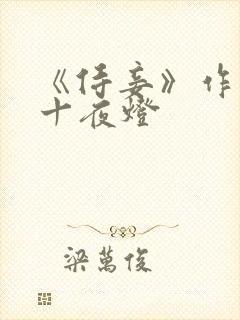 《侍妾》作
十夜燈
梁萬俊